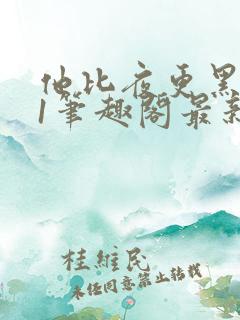 他比夜更黑
1笔趣阁最新
桂维民
未经同意禁止转载